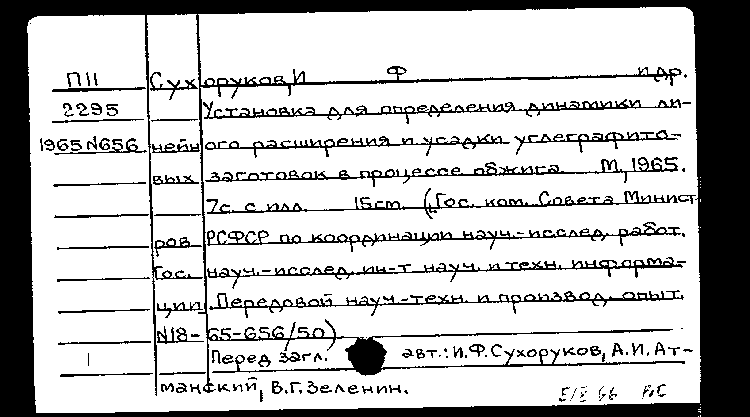 П11 Сухоруков, И Ф и др.
2295 Установка для определения динамики ли-
1965 N656 нейного расширения и усадки углеграфито-
вых заготовок в процессе обжига. М, 1965.
7с. с илл. 15см. (Гос. ком. Совета Минист
ров РСФСР по координации науч.-исслед. работ.
Гос. науч.-исслед. ин-т науч. и техн. информа-
ции. Передовой науч.-техн. и производ. опыт.
N18-65-656/50)
1 Перед загл. авт.: И.Ф.Сухоруков, А.И.Ат-
манский, В.Г.Зеленин.